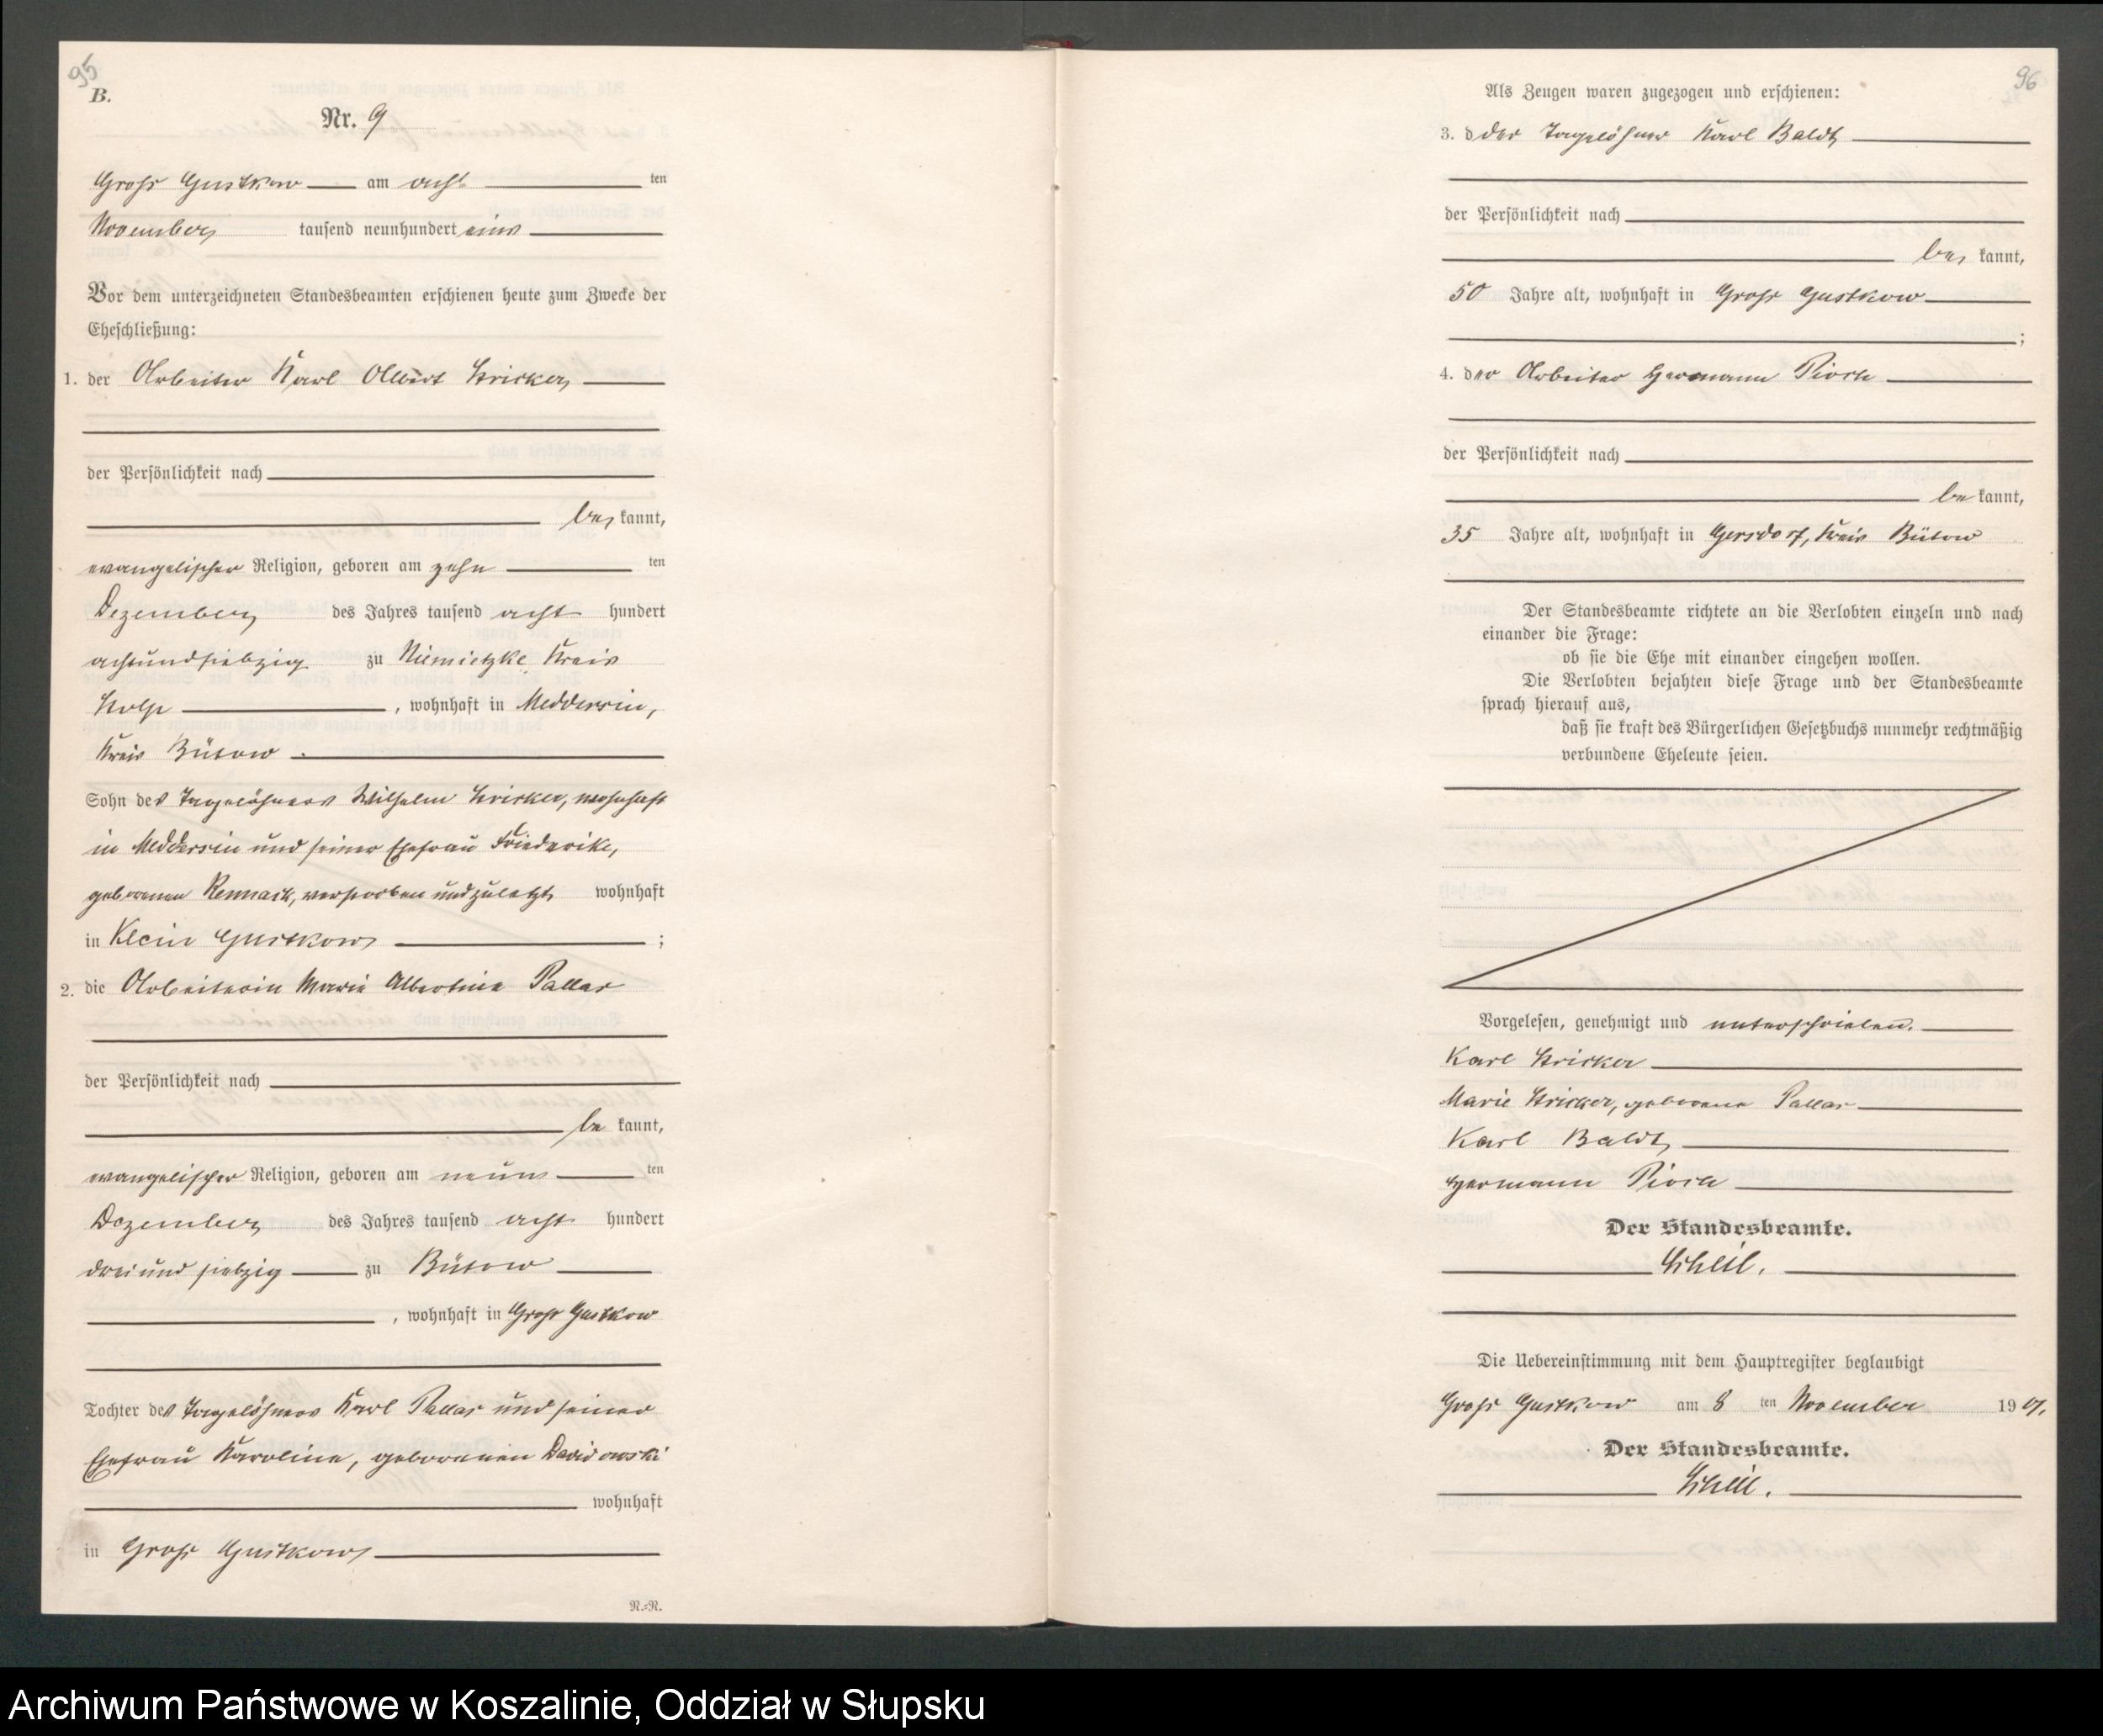 95
B.
Nr. 9
Groß Gustkow am acht ten
November tausend neunhundert eins
Vor dem unterzeichneten Standesbeamten erschienen heute zum Zwecke der
Eheschließung:
1. der Arbeiter Karl Albert Stricker,
der Persönlichkeit nach
be kannt,
evangelischer Religion, geboren am zehn ten
Dezember des Jahres tausend acht hundert
achtundsiebzig zu Niemietzke Kreis
Stolp , wohnhaft in Meddersin,
Kreis Bütow.
Sohn des Tagelöhners Wilhelm Stricker, wohnhaft
in Meddersin und seiner Ehefrau Friederike,
geborenen Remnack, verstorben und zuletzt wohnhaft
in Klein Gustkow ;
2. die Arbeiterin Marie Albertine Pallas
der Persönlichkeit nach
be kannt,
evangelischer Religion, geboren am neun ten
Dezember des Jahres tausend acht hundert
drei und siebzig zu Bütow
, wohnhaft in Groß Gustkow
Tochter des Tagelöhners Karl Pallas und seiner
Ehefrau Karoline, geborenen Davidowski
wohnhaft
in Groß Gustkow
N.=N.
96
Als Zeugen waren zugezogen und erschienen:
3. d der Tagelöhner Karl Baldt
der Persönlichkeit nach
be kannt,
50 Jahre alt, wohnhaft in Groß Gustkow
;
4. der Arbeiter Hermann Piorh
der Persönlichkeit nach
be kannt,
35 Jahre alt, wohnhaft in Gersdorf, Kreis Bütow
Der Standesbeamte richtete an die Verlobten einzeln und nach
einander die Frage:
ob sie die Ehe mit einander eingehen wollen.
Die Verlobten bejahten diese Frage und der Standesbeamte
sprach hierauf aus,
daß sie kraft des Bürgerlichen Gesetzbuchs nunmehr rechtmäßig
verbundene Eheleute seien.
Vorgelesen, genehmigt und unterschrieben.
Karl Stricker
Marie Stricker, geborene Pallas
Karl Baldt
Hermann Piorh
Der Standesbeamte.
Scheil.
Die Uebereinstimmung mit dem Hauptregister beglaubigt
Groß Gustkow am 8 ten November 19 01.
Der Standesbeamte.
Scheil.
Archiwum Państwowe w Koszalinie, Oddział w Słupsku